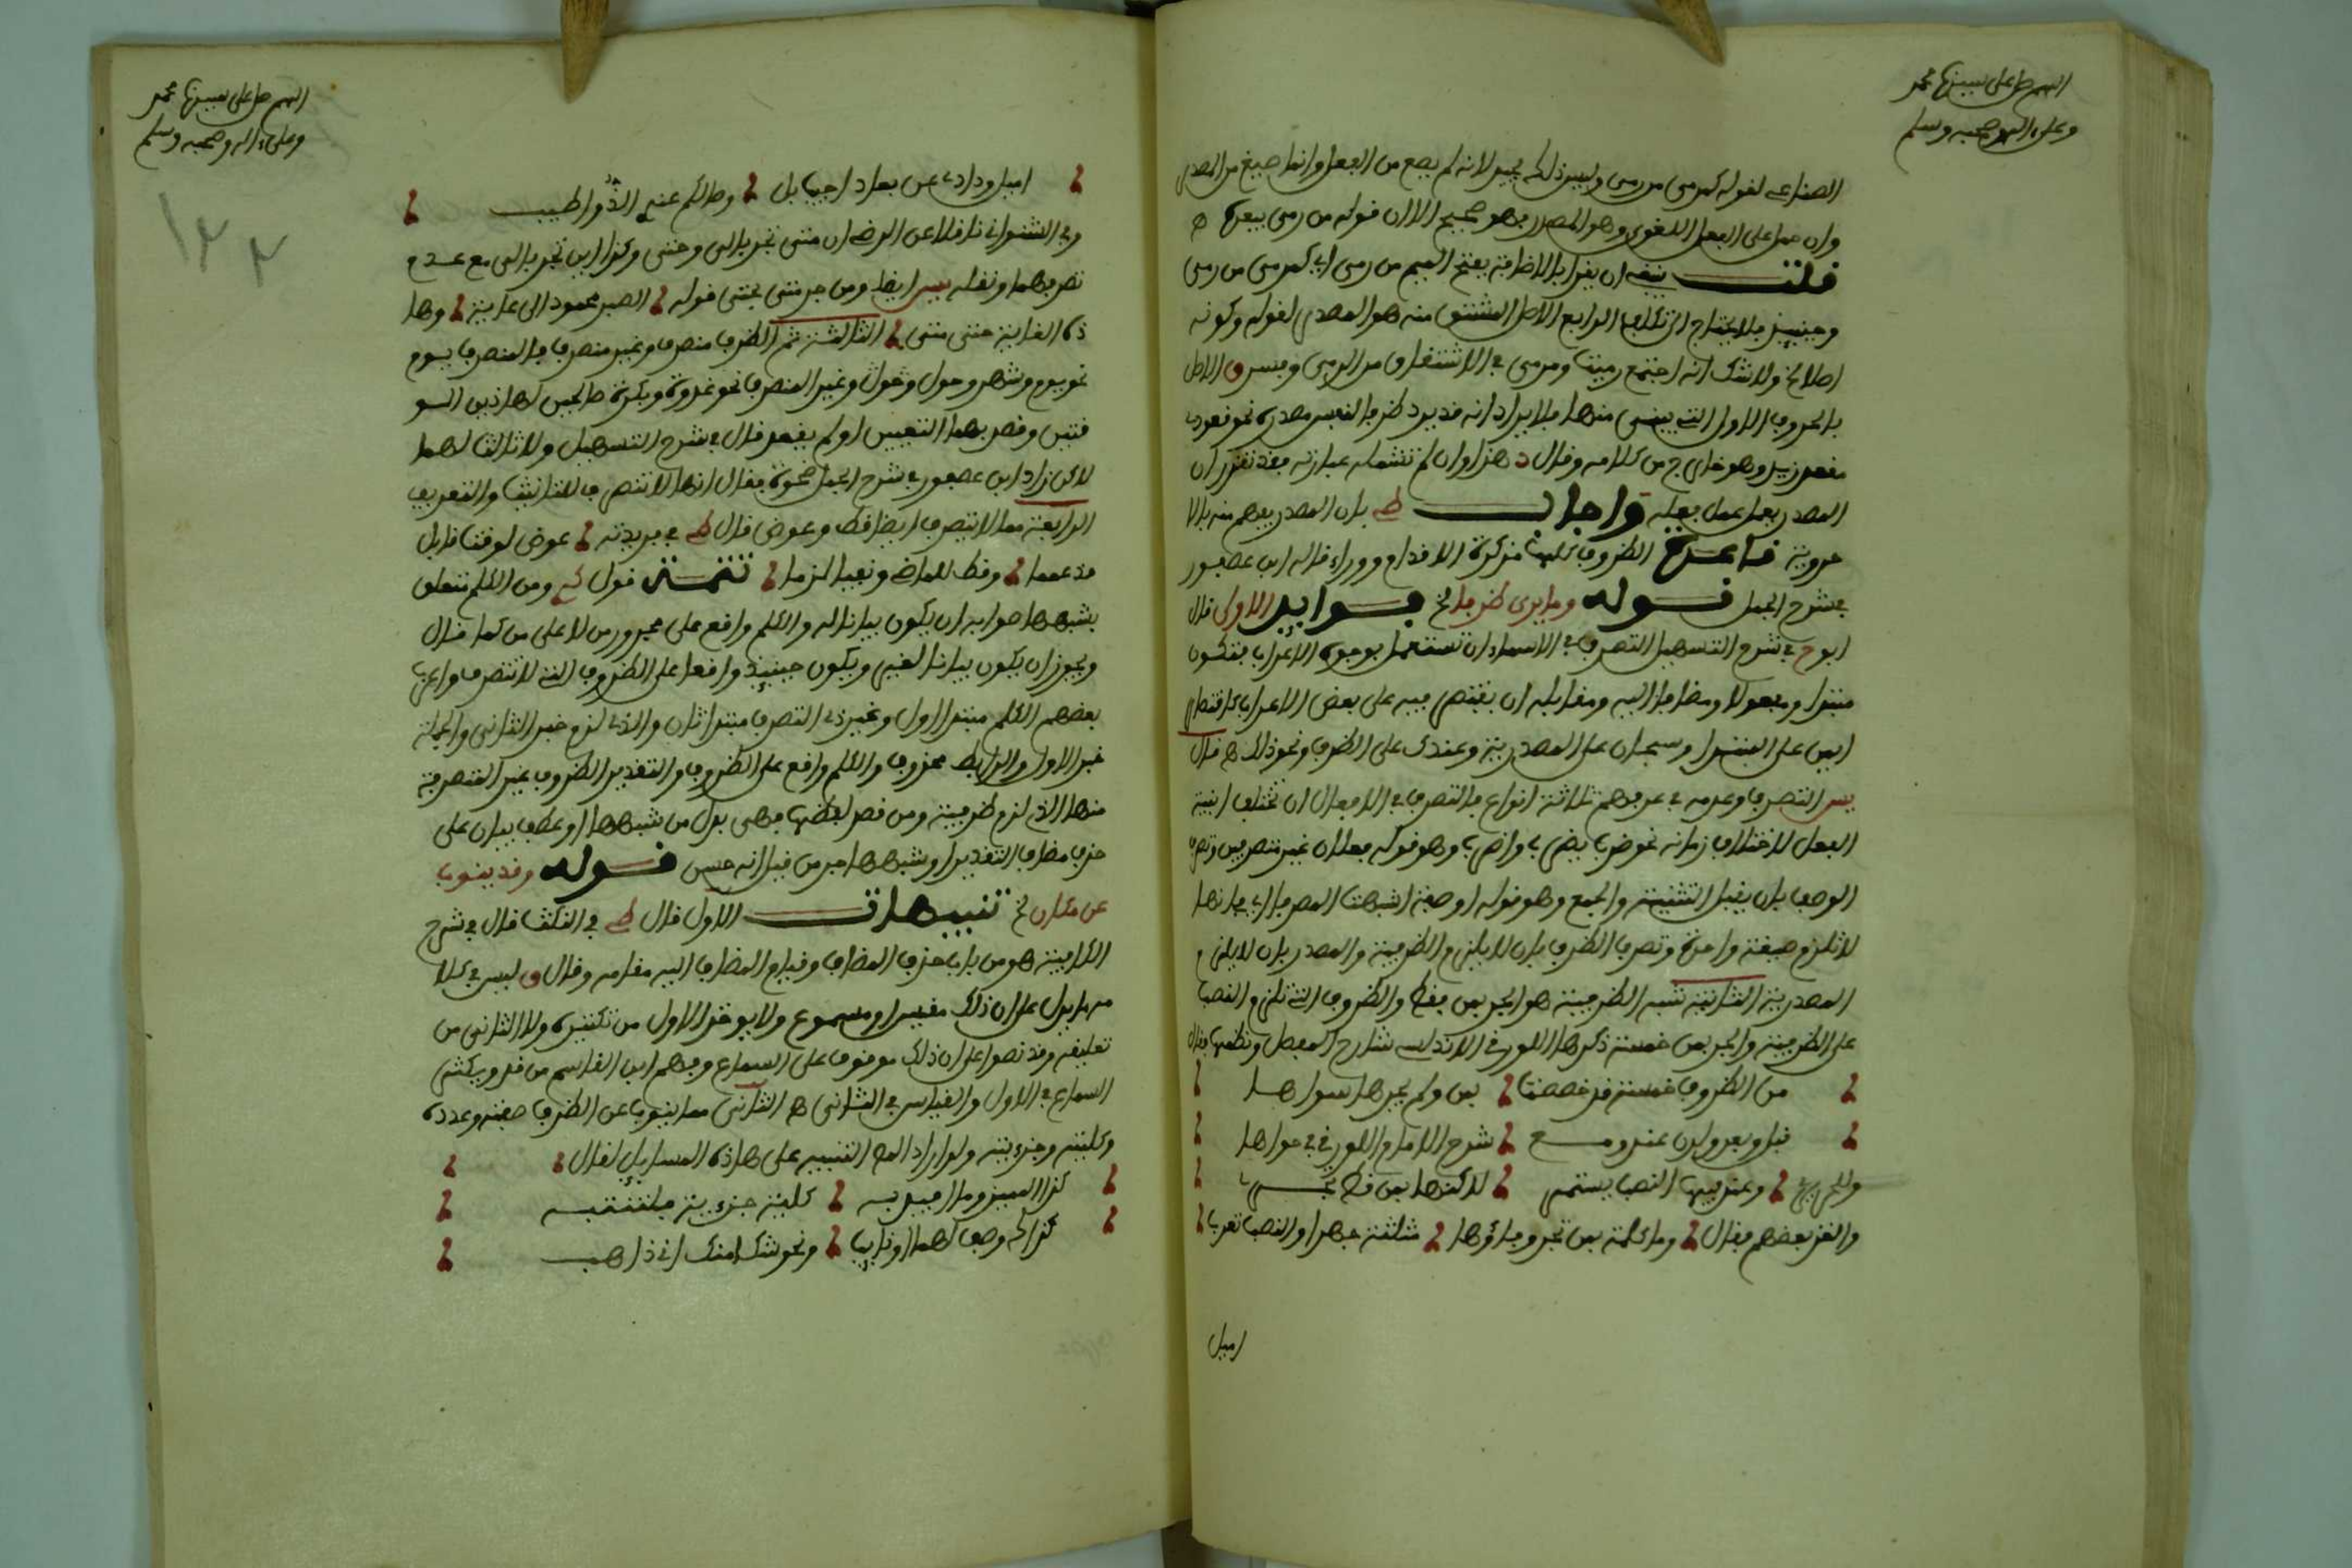 اللهم صل على سيدنا محمد
وعلى ءاله وصحبه وسلم
الصناعي لقوله كمرمى من رمى وليس ذلك بجيد لانه لم يصغ من الفعل وانما صيغ من المصدر
وان حمل على الفعل اللغوي وهو المصدر فهو صحيح الا ان قوله من رمى يبعده ه
قلت ينبغي ان يقرا بالاضافة بفتح الميم من رمى اي كمرمى من رمى
وحينئذ فلا يحتاج الى تكلف الرابع الاصل المشتق منه هو المصدر لقوله وكونه
اصلا لخ ولا شك انه اجتمع رميت ومرمى في الاشتقاق من الرمي وفسر ق الاصل
بالحروف الاول التي يبنى منها فلا يرد انه قد يرد ظرفا لنفس مصدره نحو قعودي
مقعد زيد وهو خارج من كلامه وقال د هذا وان لم تشمله عبارته فقد تقرر ان
المصدر يعمل عمل فعله واجاب ط بان المصدر يفهم منه بالا
حروية قاعدة الظروف كلها مذكرة الا قدام ووراء قاله ابن عصفور
في شرح الجمل قوله وما يرى ظرفا لخ فوايد الاولى قال
ابو ح في شرح التسهيل التصرف في الاسماء ان تستعمل بوجوه الاعراب فتكون
مبتدا ومفعولا ومضافا اليه ومقابله ان يقتصر فيه على بعض الاعراب كاقتصار
ايمن على المبتدا وسبحان على المصدرية وعندك على الظرف ونحو ذلك ه قال
يس التصرف وعدمه في عرفهم ثلاثة انواع فالتصرف في الافعال ان تختلف ابنية
الفعل لاختلاف زمانه نحو ضرب يضرب واضرب وهو قوله فعلان غير متصرفين وتصرف
الوصف بان يقبل التثنية والجمع وهو قوله او صفة اشبهت المصرفا اي فانها
لا تلزم صيغة واحدة وتصرف الظرف بان لا يلزم الظرفية والمصدر بان لا يلزم
المصدرية الثانية شبه الظرفية هو الجر بمن فقط والظروف التي تلزم النصب
على الظرفية والجر بمن خمسة ذكرها اللورقي الاندلسي شارح المفصل ونظمها فقال
من الظروف خمسة قد خصصت بمن ولم يجرها سواها
قبل وبعد ولدن عند ومع شرح الامام اللورقي حواها
وعند فيها النصب يستمر لاكنها بمن فقط تجر
والغز بعضهم فقال وما كلمة بمن تجر وجاؤها مثلثة جهرا والنصب تعرب
اميل
اللهم صل على سيدنا محمد
وعلى ءاله وصحبه وسلم
١٢٢
وفي الشنواني ناقلا عن الرضي ان متى تجر بالى وحتى وكذا اين تجر بالى مع عدم
تصرفهما ونقله يس ايضا ومن جر متى بحتى قوله الصبر محمود الى غاية وها
ذه الغاية حتى متى الثالثة ثم الظرف متصرف وغير متصرف فالمتصرف يوم
نحو يوم وشهر وحول وغير المتصرف نحو غدوة وبكرة صالحين لهاذين الو
قتين وقصد بهما التعيين او لم يقصد قال في شرح التسهيل ولا ثالث لهما
لاكن زاد ابن عصفور في شرح الجمل ضحوة فقال انها لا تنصرف للتانيث والتعريف
الرابعة مما لا يتصرف ايضا قط وعوض قال ط في فريدته عوض لوقت قابل
قد عمما وقط للماضي ونفيا لزما تتمة قول ك ومن الكلم تتعلق
بشبهها صوابه ان يكون بيانا له والكلم واقع على مجرور من لا على من كما قال
ويجوز ان يكون بيانا لغير ويكون حينئذ واقعا على الظروف التي لا تتصرف واعرب
بعضهم الكلم مبتدا اول وغير ذي التصرف مبتدا ثان والذي لزم خبر الثاني والجملة
خبر الاول والرابط محذوف والكلم واقع على الظروف والتقدير الظروف غير المتصرفة
منها الذي لزم ظرفية ومن قصر لفظها فهي بدل من شبهها او عطف بيان على
حذف مضاف التقدير او شبهها جر من قبل انه حسن قوله وقد ينوب
عن مكان لخ تنبيهات الاول قال ط في النكت قال في شرح
الكافية هو من باب حذف المضاف وقيام المضاف اليه مقامه وقال ق ليس في كلا
مه ما يدل على ان ذلك مقيس او مسموع ولا يوخذ الاول من تكثيره ولا الثاني من
تعليقه وقد نصوا على ان ذلك موقوف على السماع وفهم ابن القاسم من قد ويكثر
السماع في الاول والقياس في الثاني ه الثاني مما ينوب عن الظرف صفته وعدده
وكليته وجزءيته ولو اراد المص التنبيه على هاذه المسايل لقال
كذا المميز وما افيد به كلية جزءية فلتنتبه
كذاك وصف لهما او نابيا ونحو شك امنك اني ذاهب